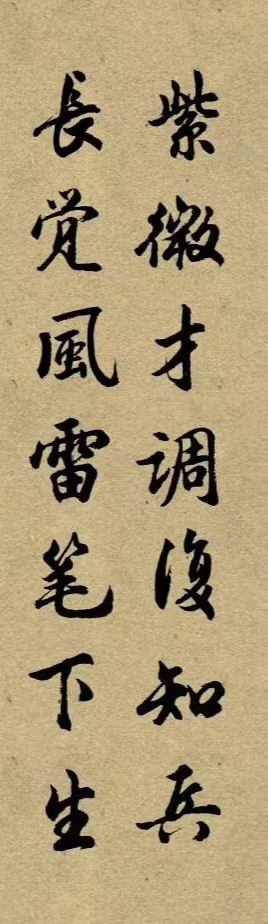 紫微才调复知兵
長觉風雷笔下生